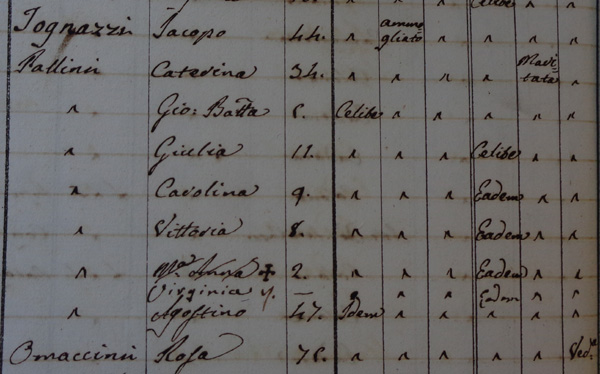 Celibe
Tognazzi Jacopo 44. " ammo-gliato " " " "
Pallini Caterina 34. " " " " Mari-tata "
" Gio: Batta Celibe " " " " "
" Giulia 11. " " " Celibe " "
" Carolina 9. " " " Eadem " "
" Vittoria 8. " " " Eadem " "
" Ma. Anna 2. " " " Eadem " "
Virginia " " " Eadem " "
" Agostino 47. Idem " " " " "
Omaccini Rosa " " " " " Ved.a